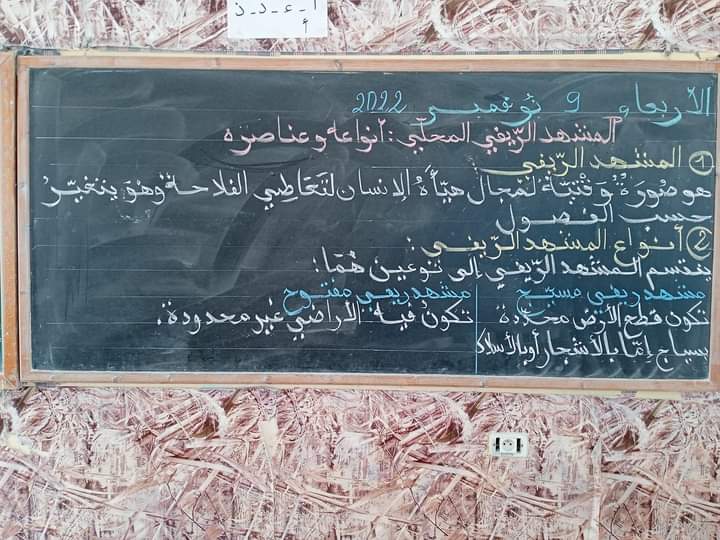 أ - ء - د - ذ
أ
الأربعاء 9 نوفمبر 2022
المشهد الرّيفي المحلّي: أنواعه وعناصره
1 المشهد الرّيفي:
هو صُورَةٌ وَقْتِيَّةٌ لمَجال هيّأهُ الإنسان لتَعَاطِي الفلاحة وهو يتغيّر
حسب الفصول
2 أنواع المشهد الرّيفي:
ينقسم المشهد الرّيفي إلى نوعين هُمَا:
مشهد ريفي مسيّج
تكون قطع الأرض محدّدة
بسياج إمّا بالأشجار أو بالأسلاك
مشهد ريفي مفتوح
تكون فيه الأراضي غير محدودة.